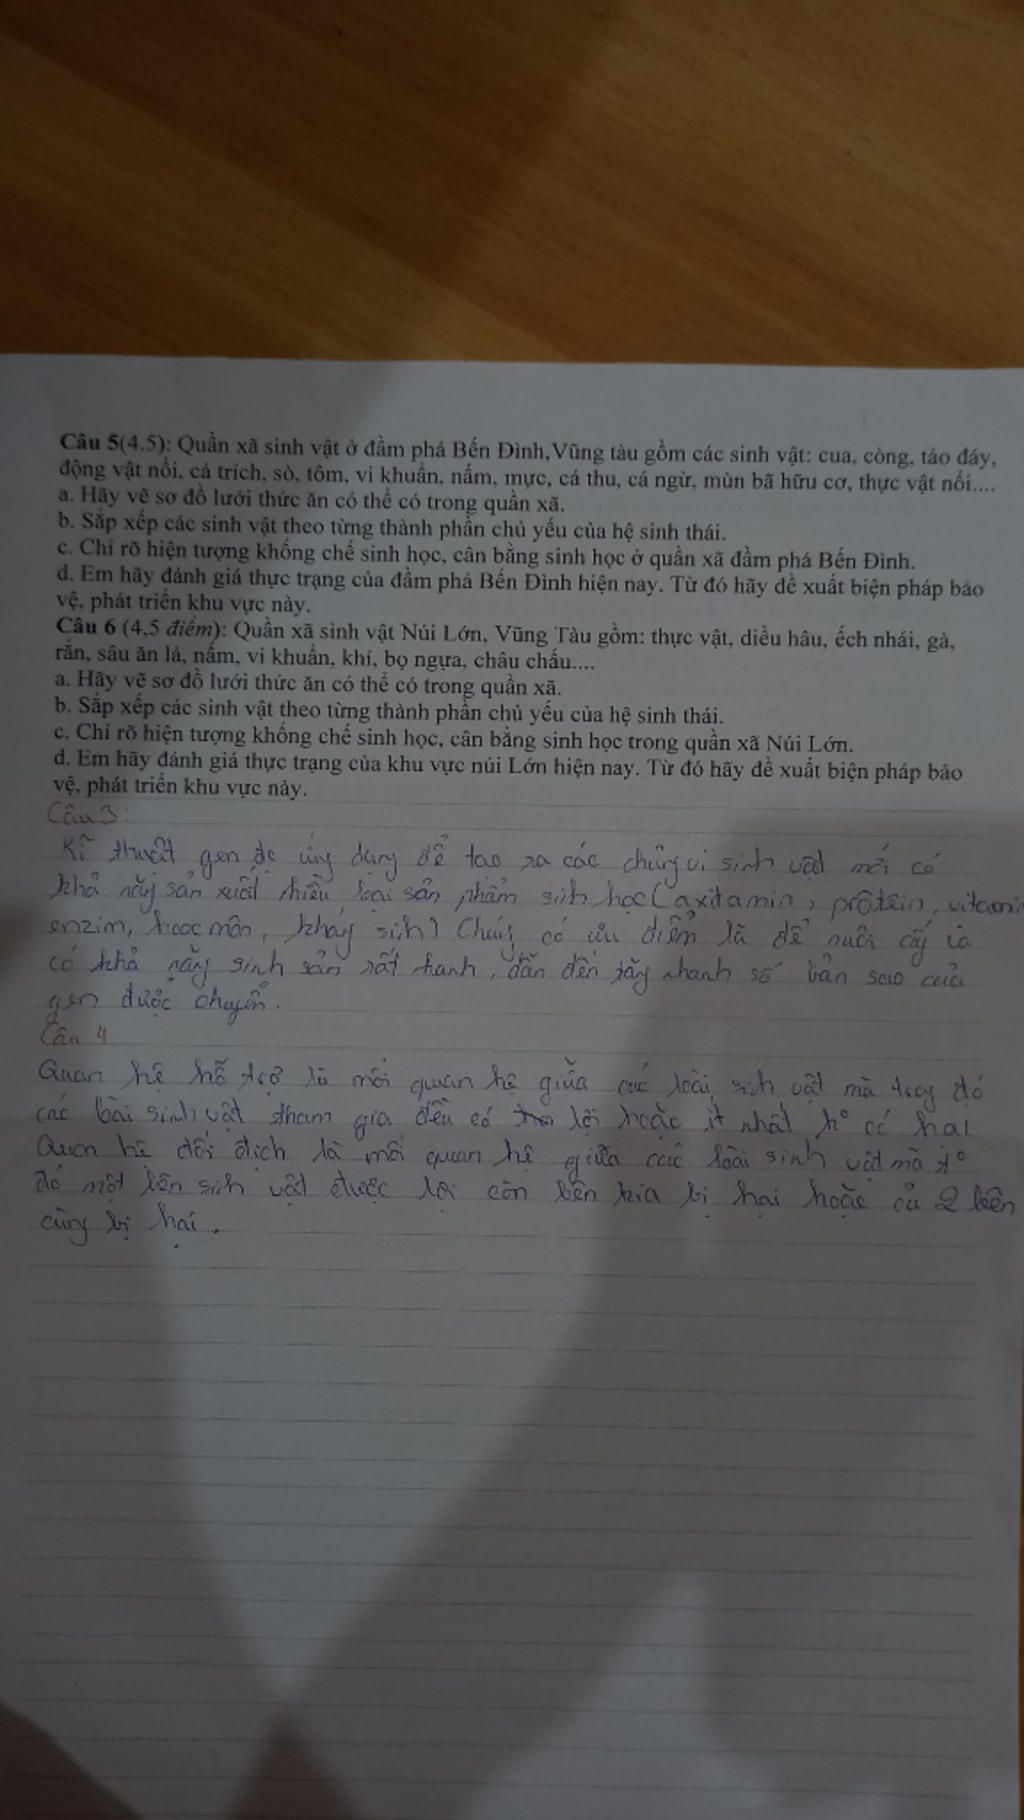 Câu 5(4.5): Quần xã sinh vật ở đầm phá Bến Đình,Vũng tàu gồm các sinh vật: cua, còng, tảo đáy,
động vật nổi, cá trích, sò, tôm, vi khuẩn, nấm, mực, cá thu, cá ngừ, mùn bã hữu cơ, thực vật nổi....
a. Hãy vẽ sơ đồ lưới thức ăn có thể có trong quần xã.
b. Sắp xếp các sinh vật theo từng thành phần chủ yếu của hệ sinh thái.
c. Chỉ rõ hiện tượng khống chế sinh học, cân bằng sinh học ở quần xã đầm phá Bến Đình.
d. Em hãy đánh giá thực trạng của đầm phá Bến Đình hiện nay. Từ đó hãy đề xuất biện pháp bảo
vệ, phát triển khu vực này.
Câu 6 (4,5 điểm): Quần xã sinh vật Núi Lớn, Vũng Tàu gồm: thực vật, diều hâu, ếch nhái, gà,
rắn, sâu ăn lá, nấm, vi khuẩn, khỉ, bọ ngựa, châu chấu....
a. Hãy vẽ sơ đồ lưới thức ăn có thể có trong quần xã.
b. Sắp xếp các sinh vật theo từng thành phần chủ yếu của hệ sinh thái.
c. Chỉ rõ hiện tượng khống chế sinh học, cân bằng sinh học trong quần xã Núi Lớn.
d. Em hãy đánh giá thực trạng của khu vực núi Lớn hiện nay. Từ đó hãy đề xuất biện pháp bảo
vệ, phát triển khu vực này.
Câu 3:
Kĩ thuật gen đc ứng dụng để tạo ra các chủng vi sinh vật mới có
khả năng sản xuất nhiều loại sản phẩm sinh học (axitamin, prôtêin, vitamin
enzim, hoocmôn, kháng sinh) Chúng có ưu điểm là dễ nuôi cấy và
có khả năng sinh sản rất nhanh, dẫn đến tăng nhanh số bản sao của
gen được chuyển.
Câu 4
Quan hệ hỗ trợ là mối quan hệ giữa các loài sinh vật mà trong đó
các loài sinh vật tham gia đều có lợi hoặc ít nhất k° có hại
Quan hệ đối địch là mối quan hệ giữa các loài sinh vật mà t°
đó một bên sinh vật được lợi còn bên kia bị hại hoặc cả 2 bên
cùng bị hại.